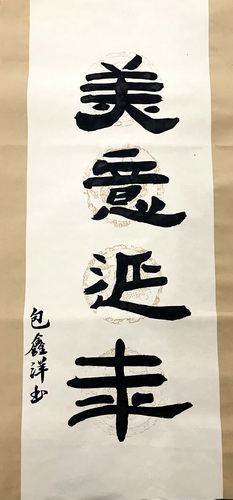 美意延年
包鑫洋书